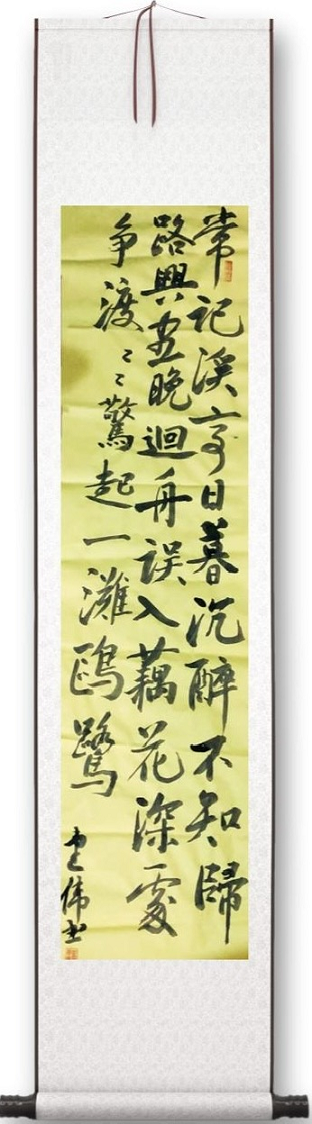 常记溪亭日暮沉醉不知歸
路興盡晚迴舟误入藕花深處
争渡〻〻驚起一灘鷗鷺
伟书